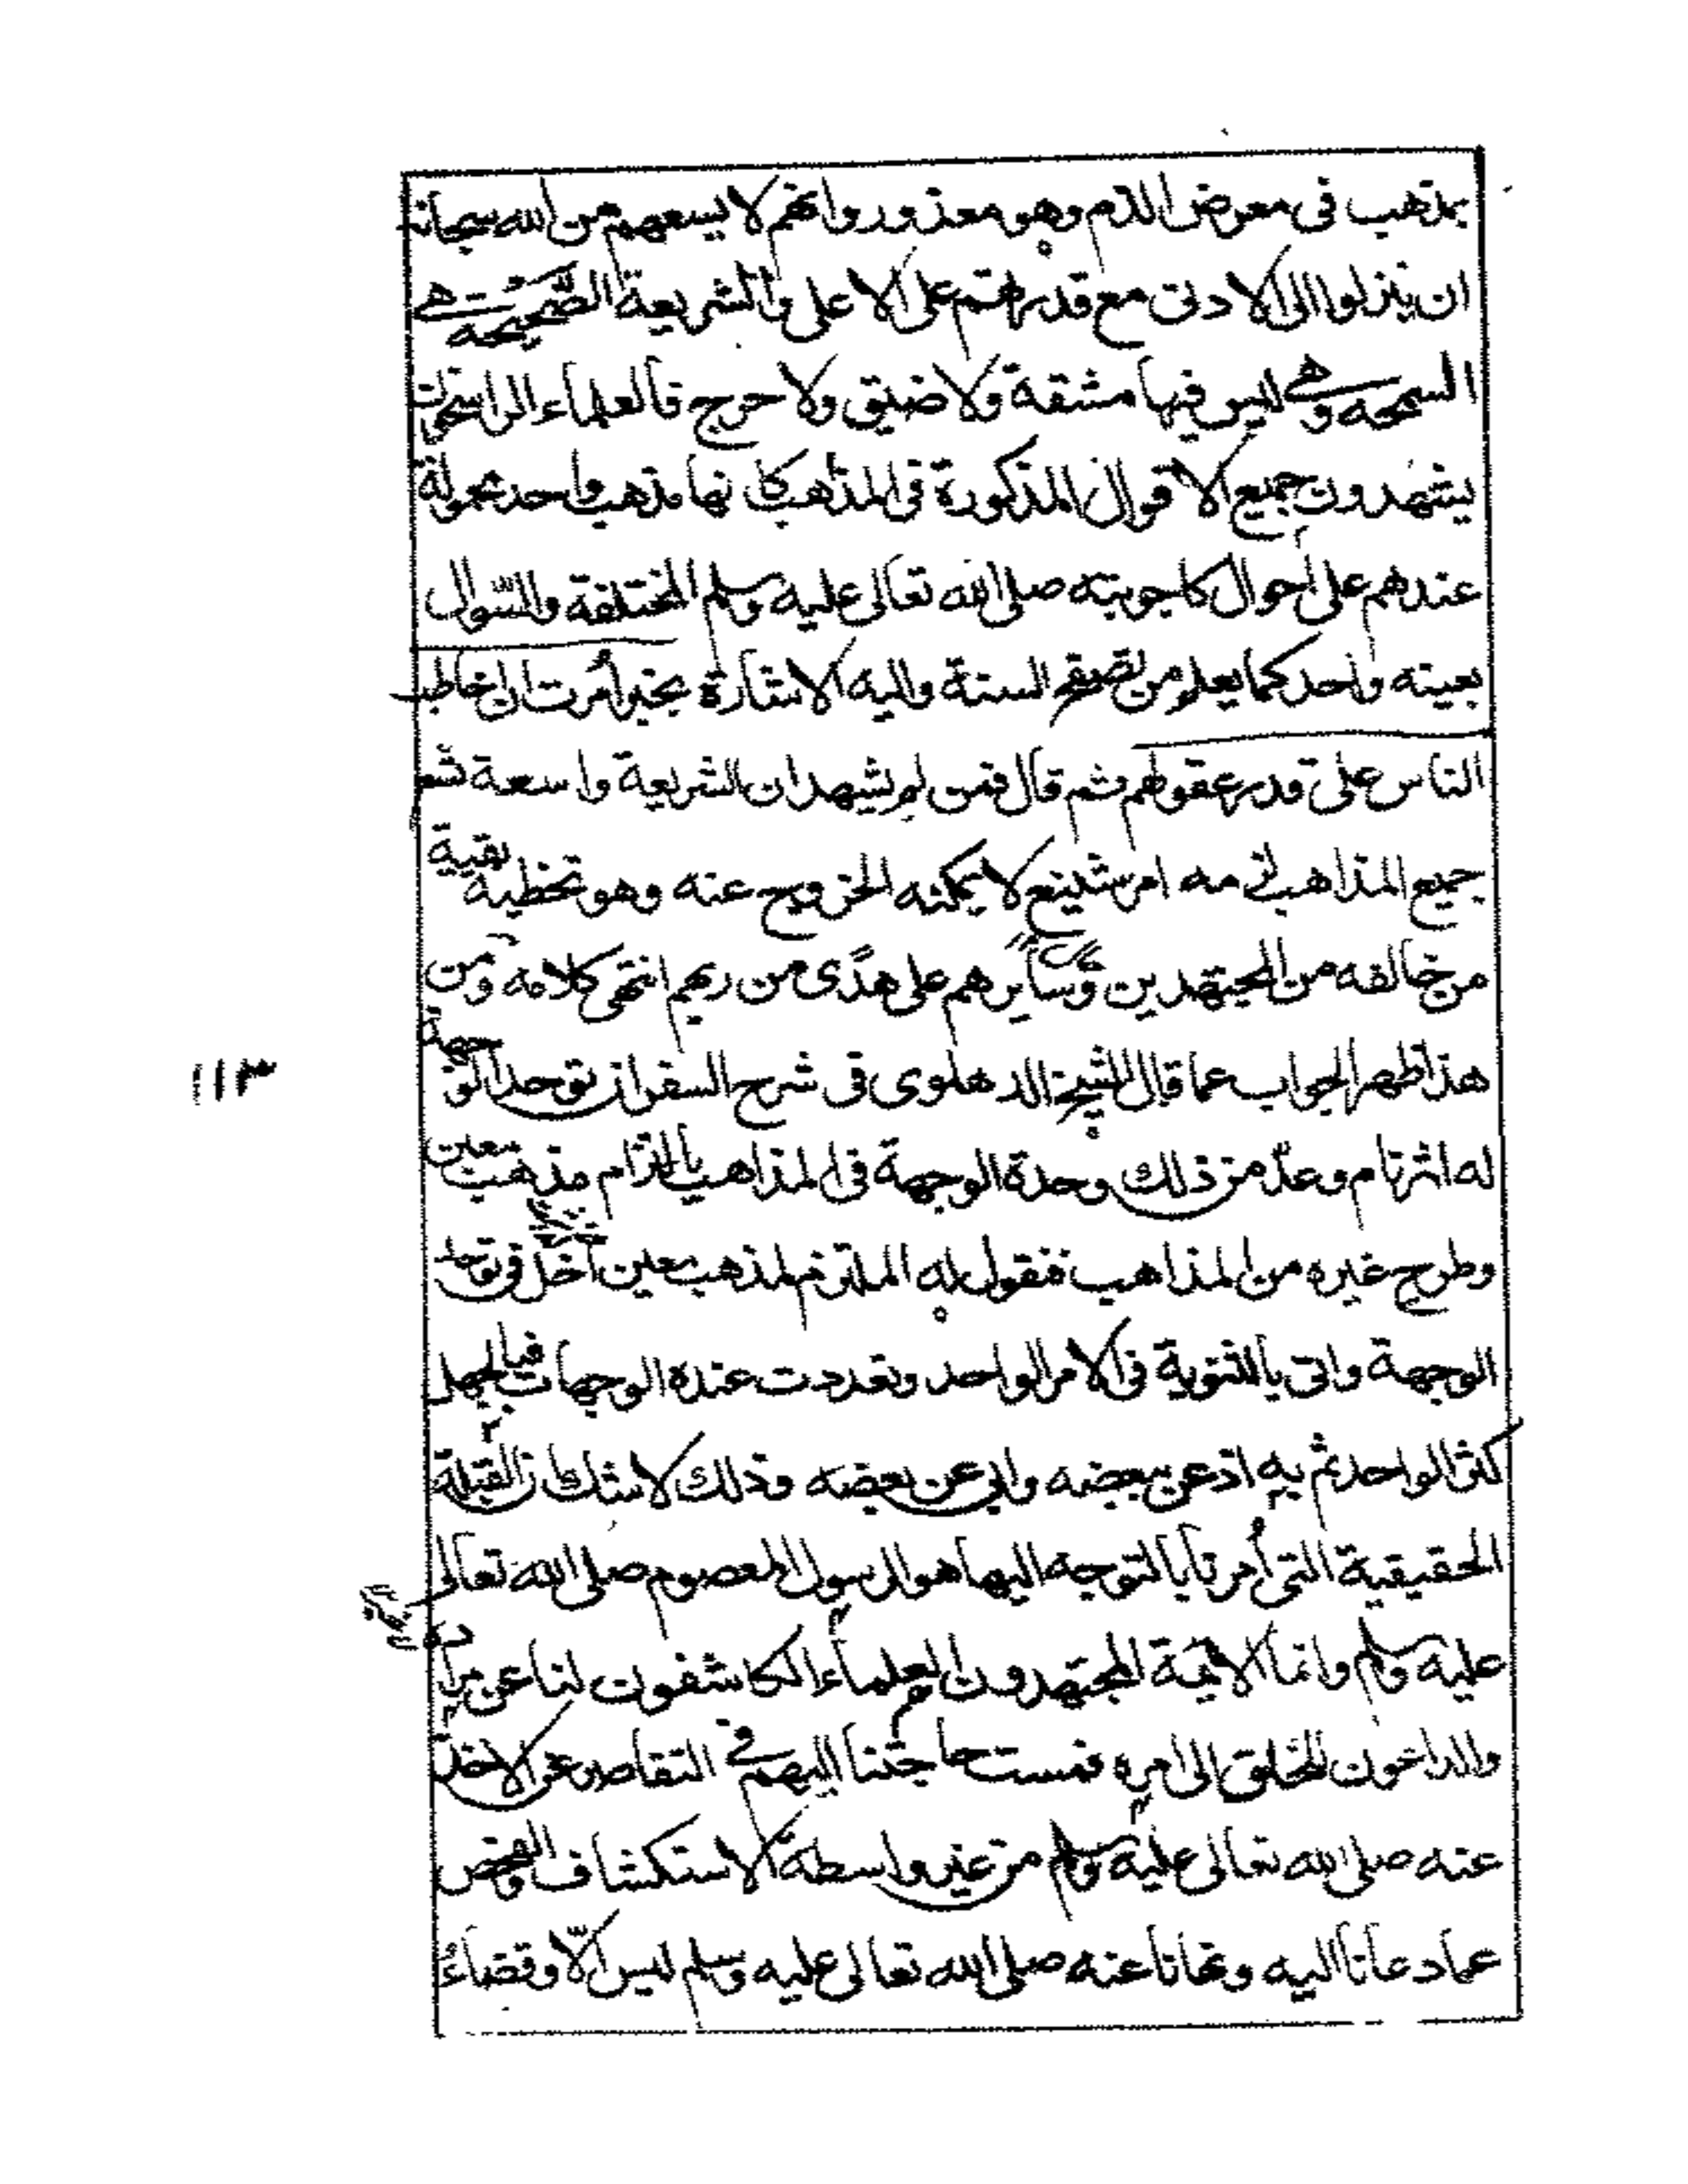 بمذهب فى معرض الذم وهو معذور وانهم لا يسعهم من الله سبحانه
ان ينزلوا الى الادنى مع قدرتهم على الاعلى والشريعة الصحيحة هى
السمحة وهى ليس فيها مشقة ولا ضيق ولا حرج فالعلماء الراسخون
يشهدون جميع الاقوال المذكورة فى المذاهب كانها مذهب واحد محمولة
عندهم على أحوال كاجوبته صلى الله تعالى عليه وسلم المختلفة والسّوال
بعينه واحد كما يعلم من تصفح السنة واليه الاشارة بخبر أمرت ان اخاطب
الناس على قدر عقولهم ثم قال فمن لم يشهد ان الشريعة واسعة تسع
جميع المذاهب لزمه امر شنيع لا يمكنه الخروج عنه وهو تخطية بقية
من خالفه من المجتهدين وسايرهم على هدًى من ربهم انتهى كلامه ومن
هذا ظهر الجواب عما قال الشيخ الدهلوى فى شرح السفر ان توحد الوجهة
له اثر تام وعدّ من ذلك وحدة الوجهة فى المذاهب بالتزام مذهب معين
وطرح غيره من المذاهب فنقول له الملتزم لمذهب معين اخل فى توحد
الوجهة واتى بالثنوية فى الامر الواحد وتعددت عنده الوجهات فبالجهل
كثر الواحد ثم به اذعن ببعضه وابى عن بعضه وذلك لا شك ان القبلة
الحقيقية التى أمرنا بالتوجه اليها هو الرسول المعصوم صلى الله تعالى
عليه وسلم وانما الائمة المجتهدون العلماء الكاشفون لنا عن مراده
والداعون للخلق الى امره فمست حاجتنا اليهم فى التقاصر عن الاخذ
عنه صلى الله تعالى عليه وسلم من غير واسطة الاستكشاف والفحص
عما دعانا اليه ونهانا عنه صلى الله تعالى عليه وسلم ليس الّا وقضاءُ
١١٣